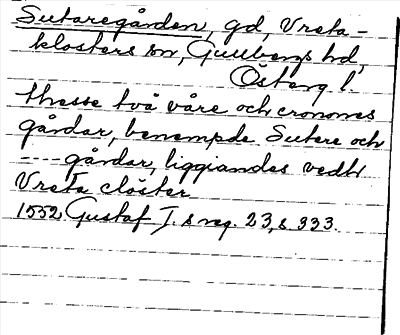 Sutaregården, gd, Vreta-
klosters sn, Gullbergs hd,
Österg l.
thesse två våre och cronones
gårdar, benempde Sutere och
---- gårdar, liggiandes vedh
Vreta clöster
1552 Gustaf I. s reg. 23, s 333.